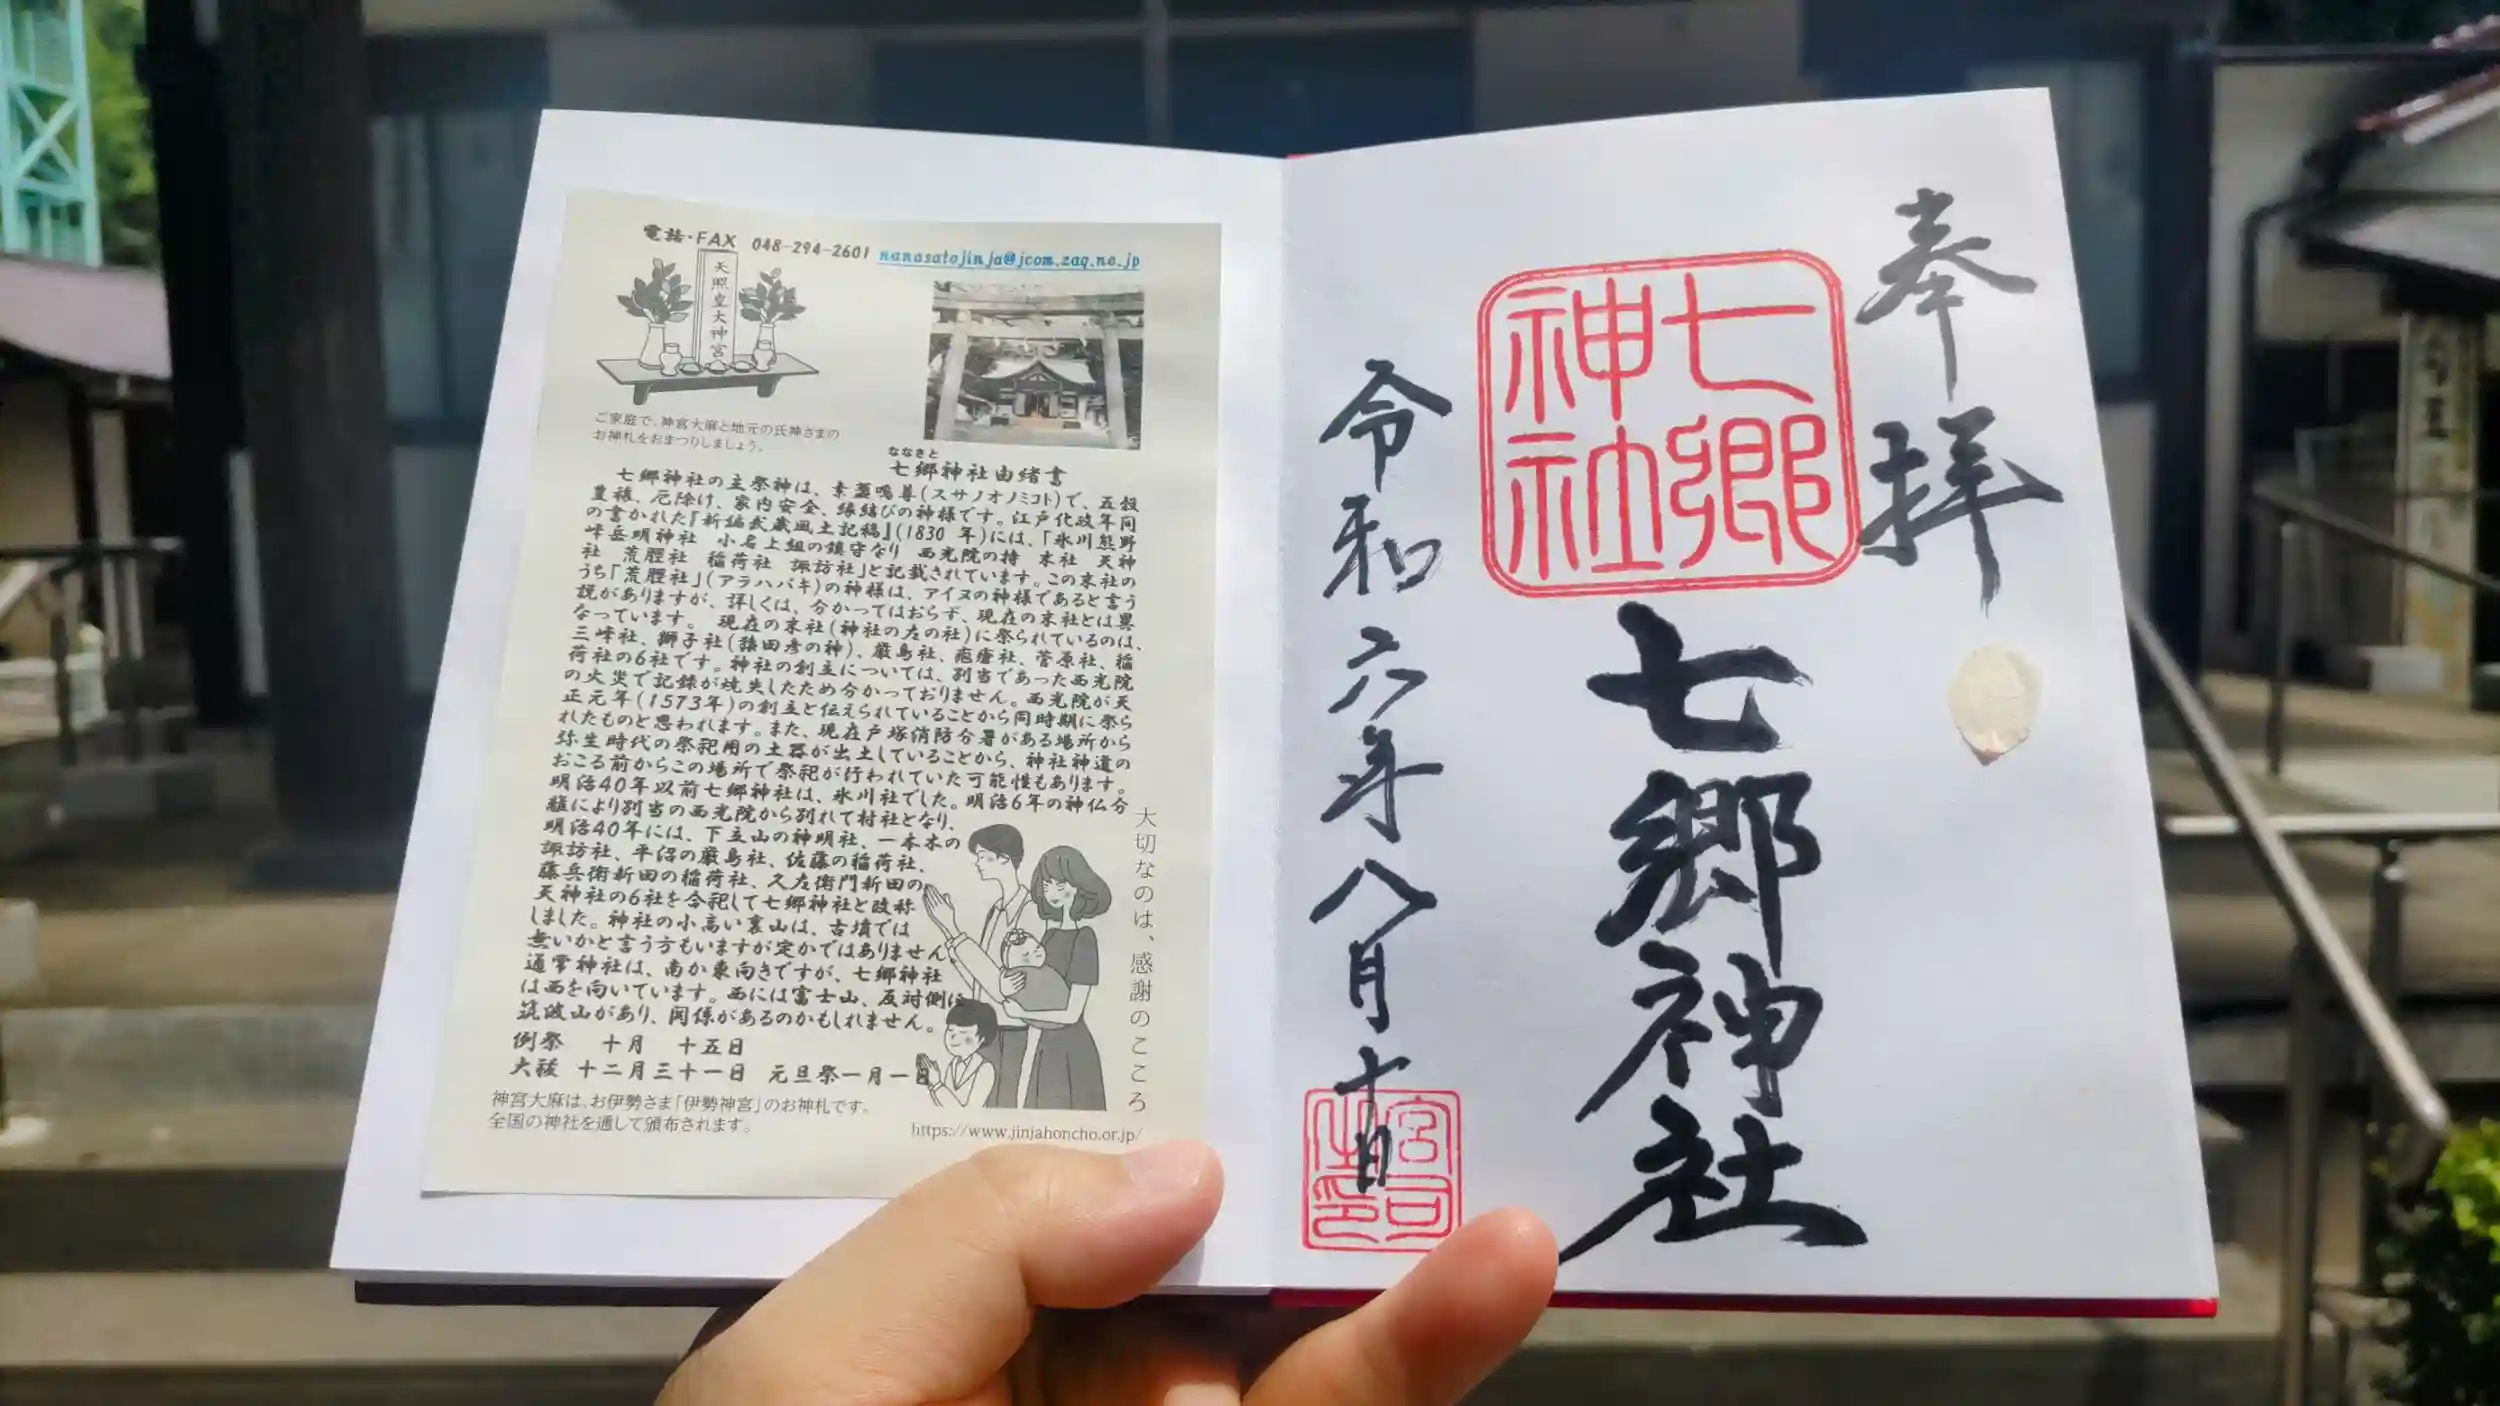 電話・FAX 048-294-2601 nanasatojinja@jcom.zaq.ne.jp
天照皇大神宮
ご家庭で、神宮大麻と地元の氏神さまの
お神札をおまつりしましょう。
ななさと
七郷神社由緒書
七郷神社の主祭神は、素盞嗚尊(スサノオノミコト)で、五穀
豊穣、厄除け、家内安全、縁結びの神様です。江戸化政年間
の書かれた『新編武蔵風土記稿』(1830 年)には、「氷川熊野
峰岳明神社 小名上組の鎮守なり 西光院の持 末社 天神
社 荒脛社 稲荷社 諏訪社」と記載されています。この末社の
うち「荒脛社」(アラハバキ)の神様は、アイヌの神様であると言う
説がありますが、詳しくは、分かってはおらず、現在の末社とは異
なっています。 現在の末社(神社の左の社)に祭られているのは、
三峰社、獅子社(猿田彦の神)、厳島社、疱瘡社、菅原社、稲
荷社の6社です。神社の創立については、別当であった西光院
の火災で記録が焼失したため分かっておりません。西光院が天
正元年(1573年)の創立と伝えられていることから同時期に祭ら
れたものと思われます。また、現在戸塚消防分署がある場所から
弥生時代の祭祀用の土器が出土していることから、神社神道の
おこる前からこの場所で祭祀が行われていた可能性もあります。
明治40年以前七郷神社は、氷川社でした。明治6年の神仏分
離により別当の西光院から別れて村社となり、
明治40年には、下立山の神明社、一本木の
諏訪社、平沼の厳島社、佐藤の稲荷社、
藤兵衛新田の稲荷社、久左衛門新田の
天神社の6社を合祀して七郷神社と改称
しました。神社の小高い裏山は、古墳では
無いかと言う方もいますが定かではありません。
通常神社は、南か東向きですが、七郷神社
は西を向いています。西には富士山、反対側に
筑波山があり、関係があるのかもしれません。
例祭 十月 十五日
大祓 十二月三十一日 元旦祭一月一日
大切なのは、感謝のこころ
神宮大麻は、お伊勢さま「伊勢神宮」のお神札です。
全国の神社を通して頒布されます。
https://www.jinjahoncho.or.jp/
奉拝
七郷
神社
七郷神社
令和六年八月十日
宮司
之印